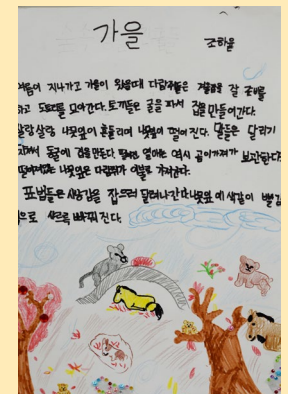 가을
조하율
여름이 지나가고 가을이 왔을때 다람쥐들은 겨울잠을 잘 준비를
하고 도토리를 모아간다. 토끼들은 굴을 파서 집을 만들어간다.
살랑살랑 나뭇잎이 흔들리며 나뭇잎이 떨어진다. 말들은 달리기
동굴에 집을만든다. 열매는 역시 곰이가져가 보관한다
나뭇잎은 다람쥐가 이불로 가져간다.
표범들은 사냥감을 잡으러 달려나간다 나뭇잎에 색깔이 빨강
으로 사르륵 빠뀌진다.